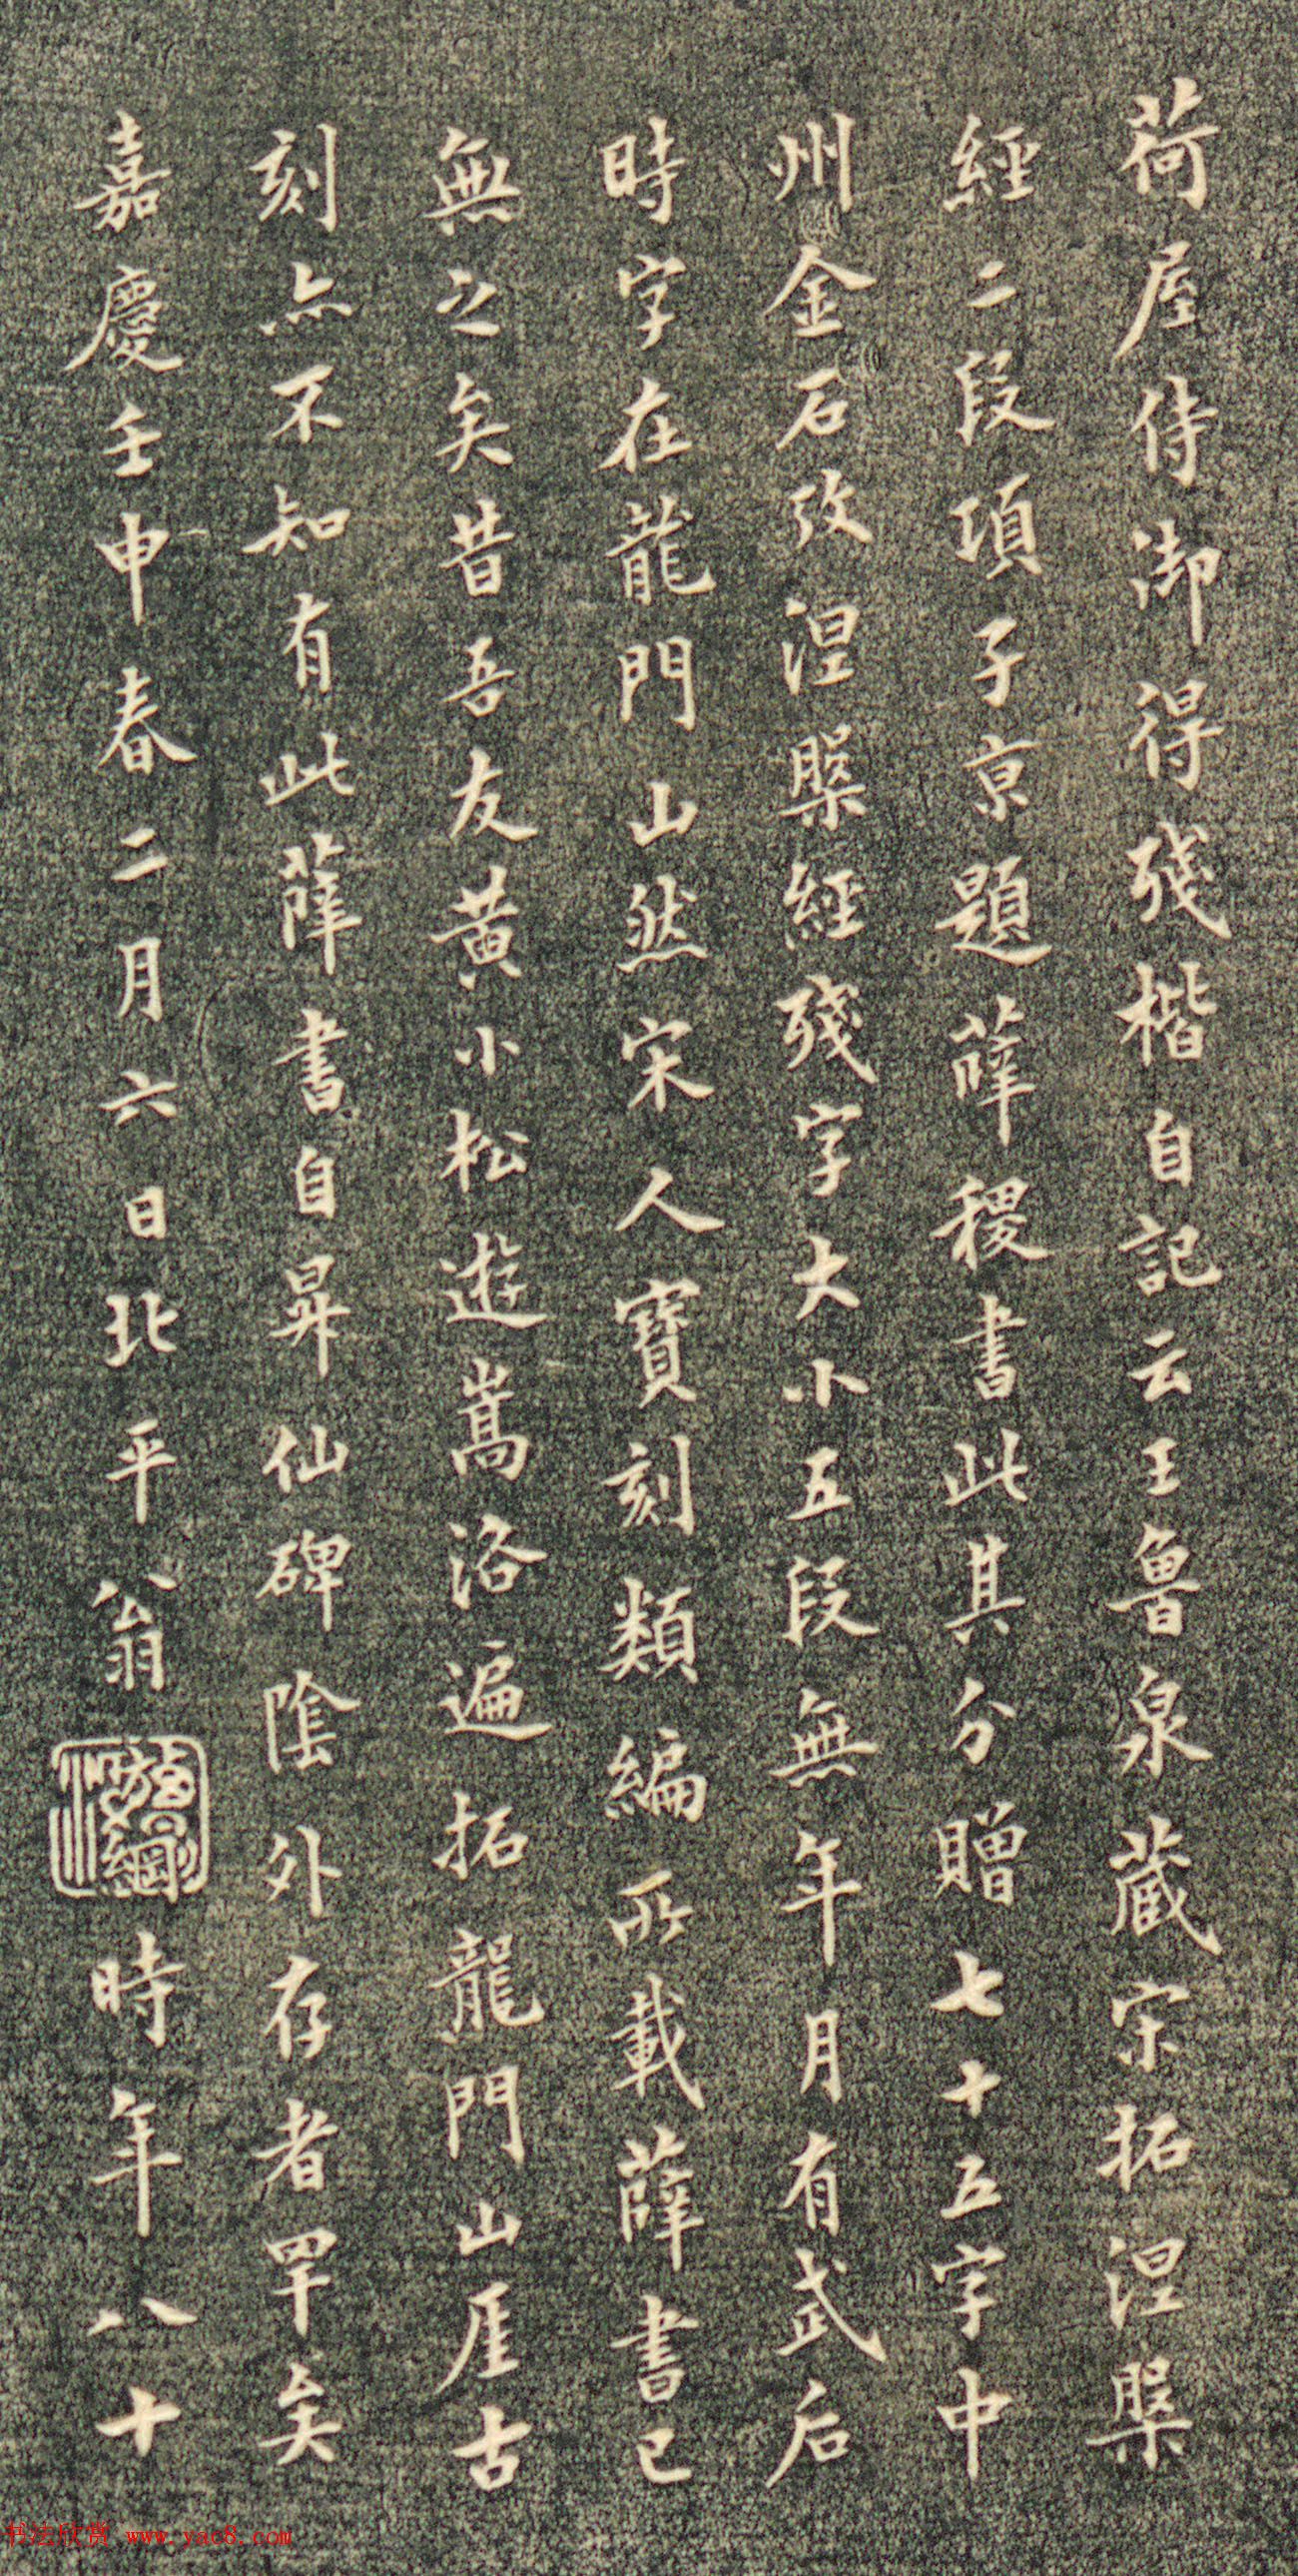 荷屋侍御得殘楷自記云王魯泉藏宋拓涅槃
經二段項子京題薛稷書此其分贈七十五字中
州金石攷涅槃經殘字大小五段無年月有武后
時字在龍門山然宋人寶刻類編所載薛書已
無之矣昔吾友黃小松遊嵩洛遍拓龍門山厓古
刻亦不知有此薛書自昇仙碑陰外存者罕矣
嘉慶壬申春二月六日北平翁
方綱
時年八十
书法欣赏 www.yac8.com